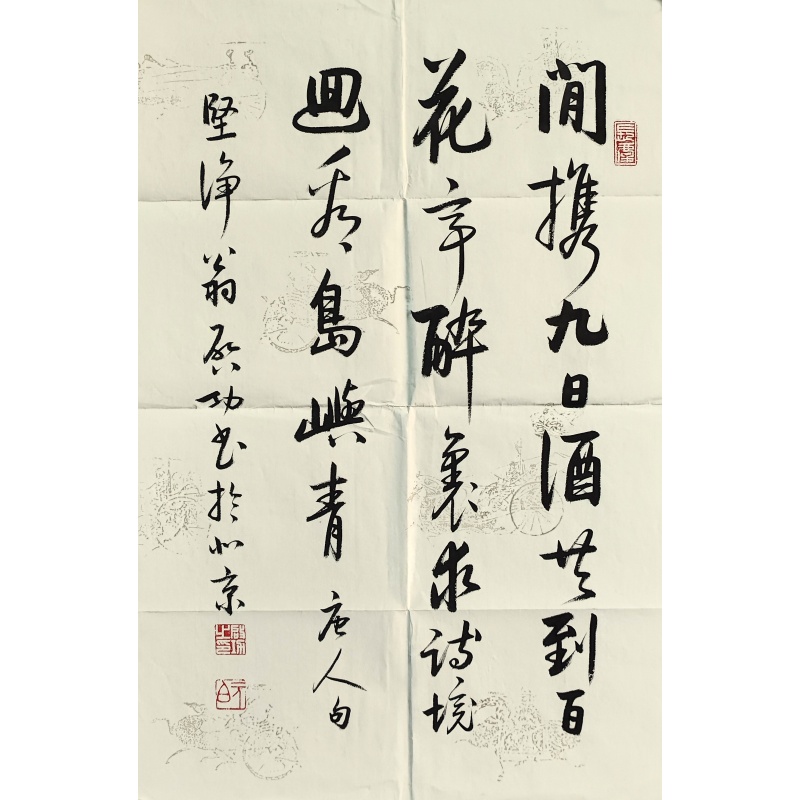 閒携九日酒共到百
花亭醉裏求詩境
回看島嶼青 唐人句
堅淨翁啟功书於北京